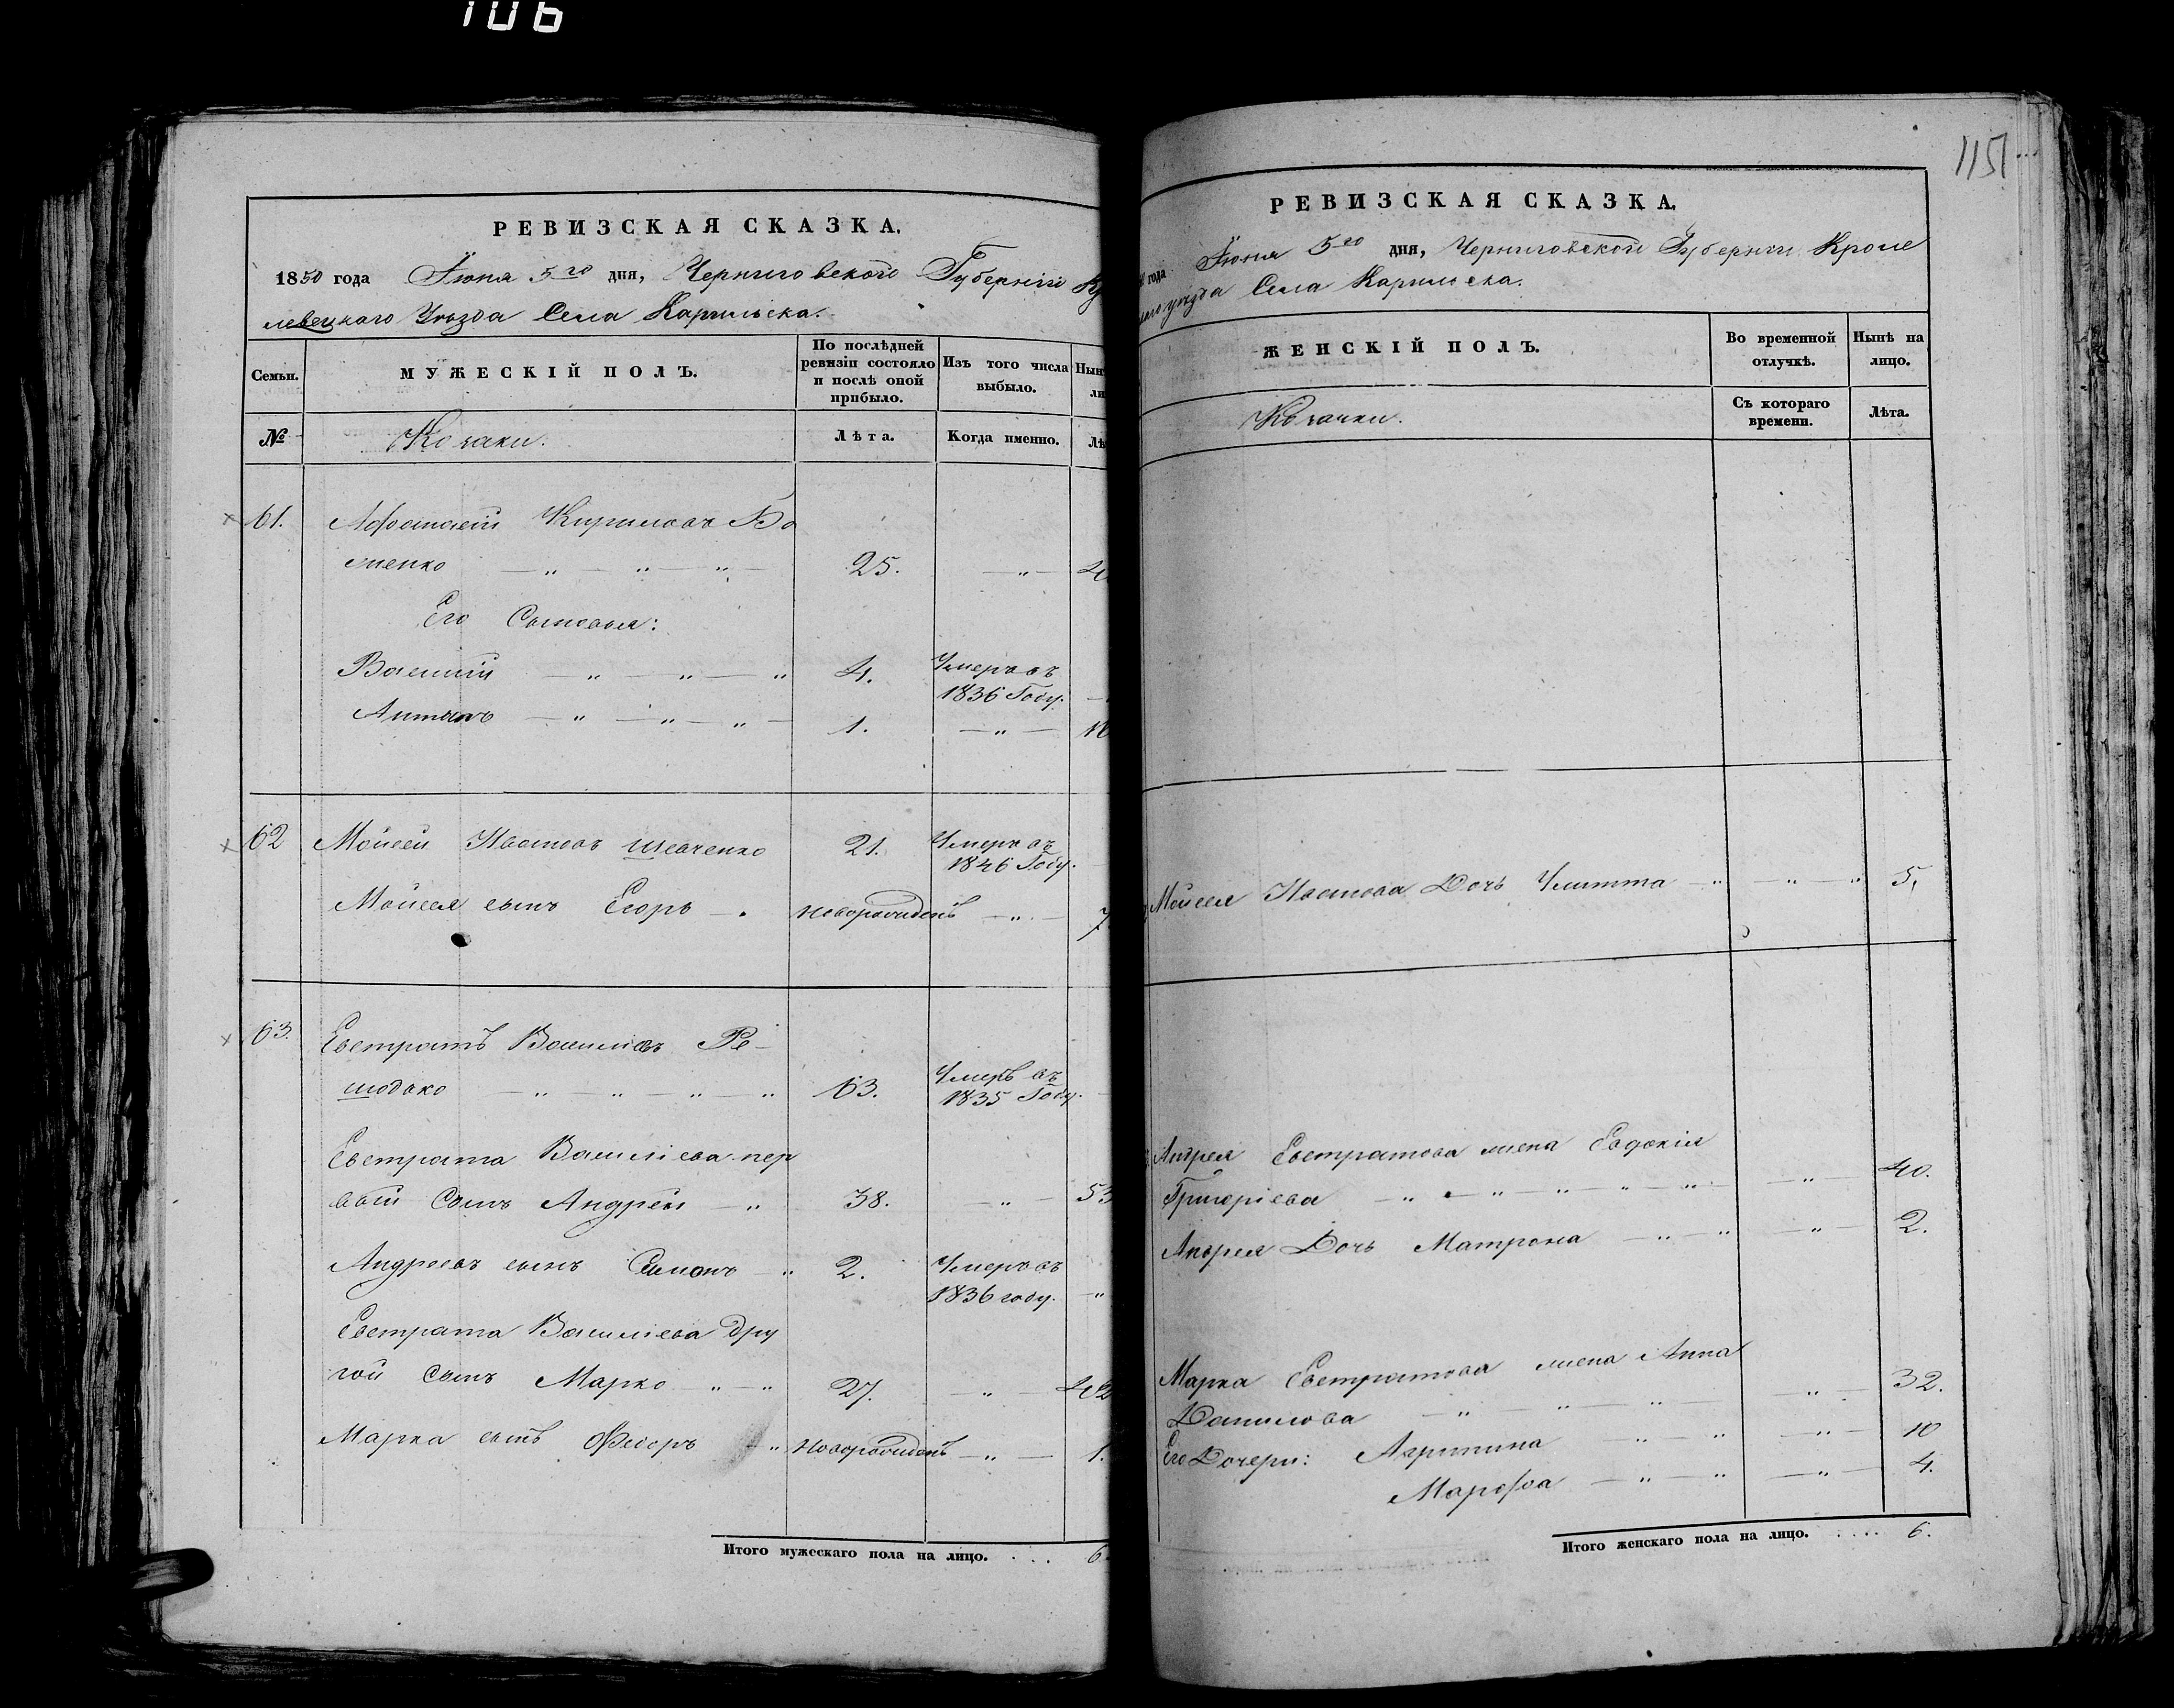 106
РЕВИЗСКАЯ СКАЗКА.
1850 года Іюня 5го дня, Черниговской Губерніи Кро
левецкаго Уѣзда Села Карильска.
Семьи.
МУЖЕСКІЙ ПОЛЪ.
По послѣдней ревизіи состояло и послѣ оной прибыло.
Изъ того числа выбыло.
№
Козаки.
Лѣта.
Когда именно.
61.
Афонасій Кириловъ
менко 25.
Его Сыновья:
Василій 4. Умеръ въ
1836 Году.
Антонъ 1. 16
62 Мойсей Ивановъ Шевченко 21. Умеръ въ
1846 Году.
Мойсея сынъ Егоръ новорожденъ 7
63. Евстратъ Василіевъ Ре-
шодько 63. Умеръ въ
1835 Году.
Евстрата Василіева пер
вый Сынъ Андрей 38. 53
Андреевъ сынъ Симонъ 2. Умеръ въ
1836 году.
Евстрата Василіева дру
гой Сынъ Марко 27. 42
Марка сынъ Федоръ Новорожденъ 1.
Итого мужескаго пола на лицо. . . . 6
115
РЕВИЗСКАЯ СКАЗКА.
года Іюня 5го дня, Черниговской Губерніи Кроле
уѣзда Села Карильска.
ЖЕНСКІЙ ПОЛЪ.
Во временной отлучкѣ.
Нынѣ на лицо.
Козачки.
Съ котораго времени.
Лѣта.
Мойсея Иванова Дочь Улитта 5.
Андрея Евстратова жена Евдокія
Григоріева 40.
Андрея Дочь Матрона 2.
Марка Евстратова жена Анна
Данилова 32.
Его Дочери: Агрипина 10
Марфа 4.
Итого женскаго пола на лицо. . . . . 6.